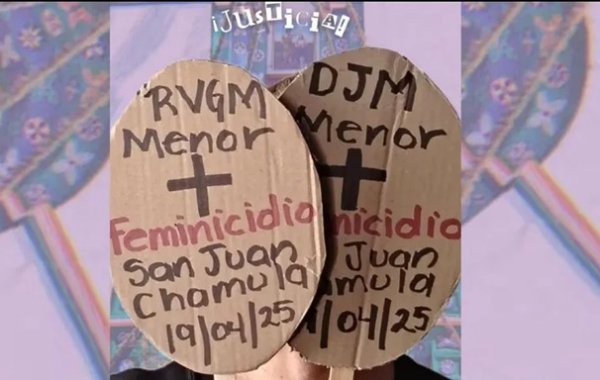 ¡JUSTICIA!
RVGM
Menor
+
Feminicidio
San Juan
Chamula
19/04/25
DJM
Menor
+
nicidio
Juan
mula
/04/25